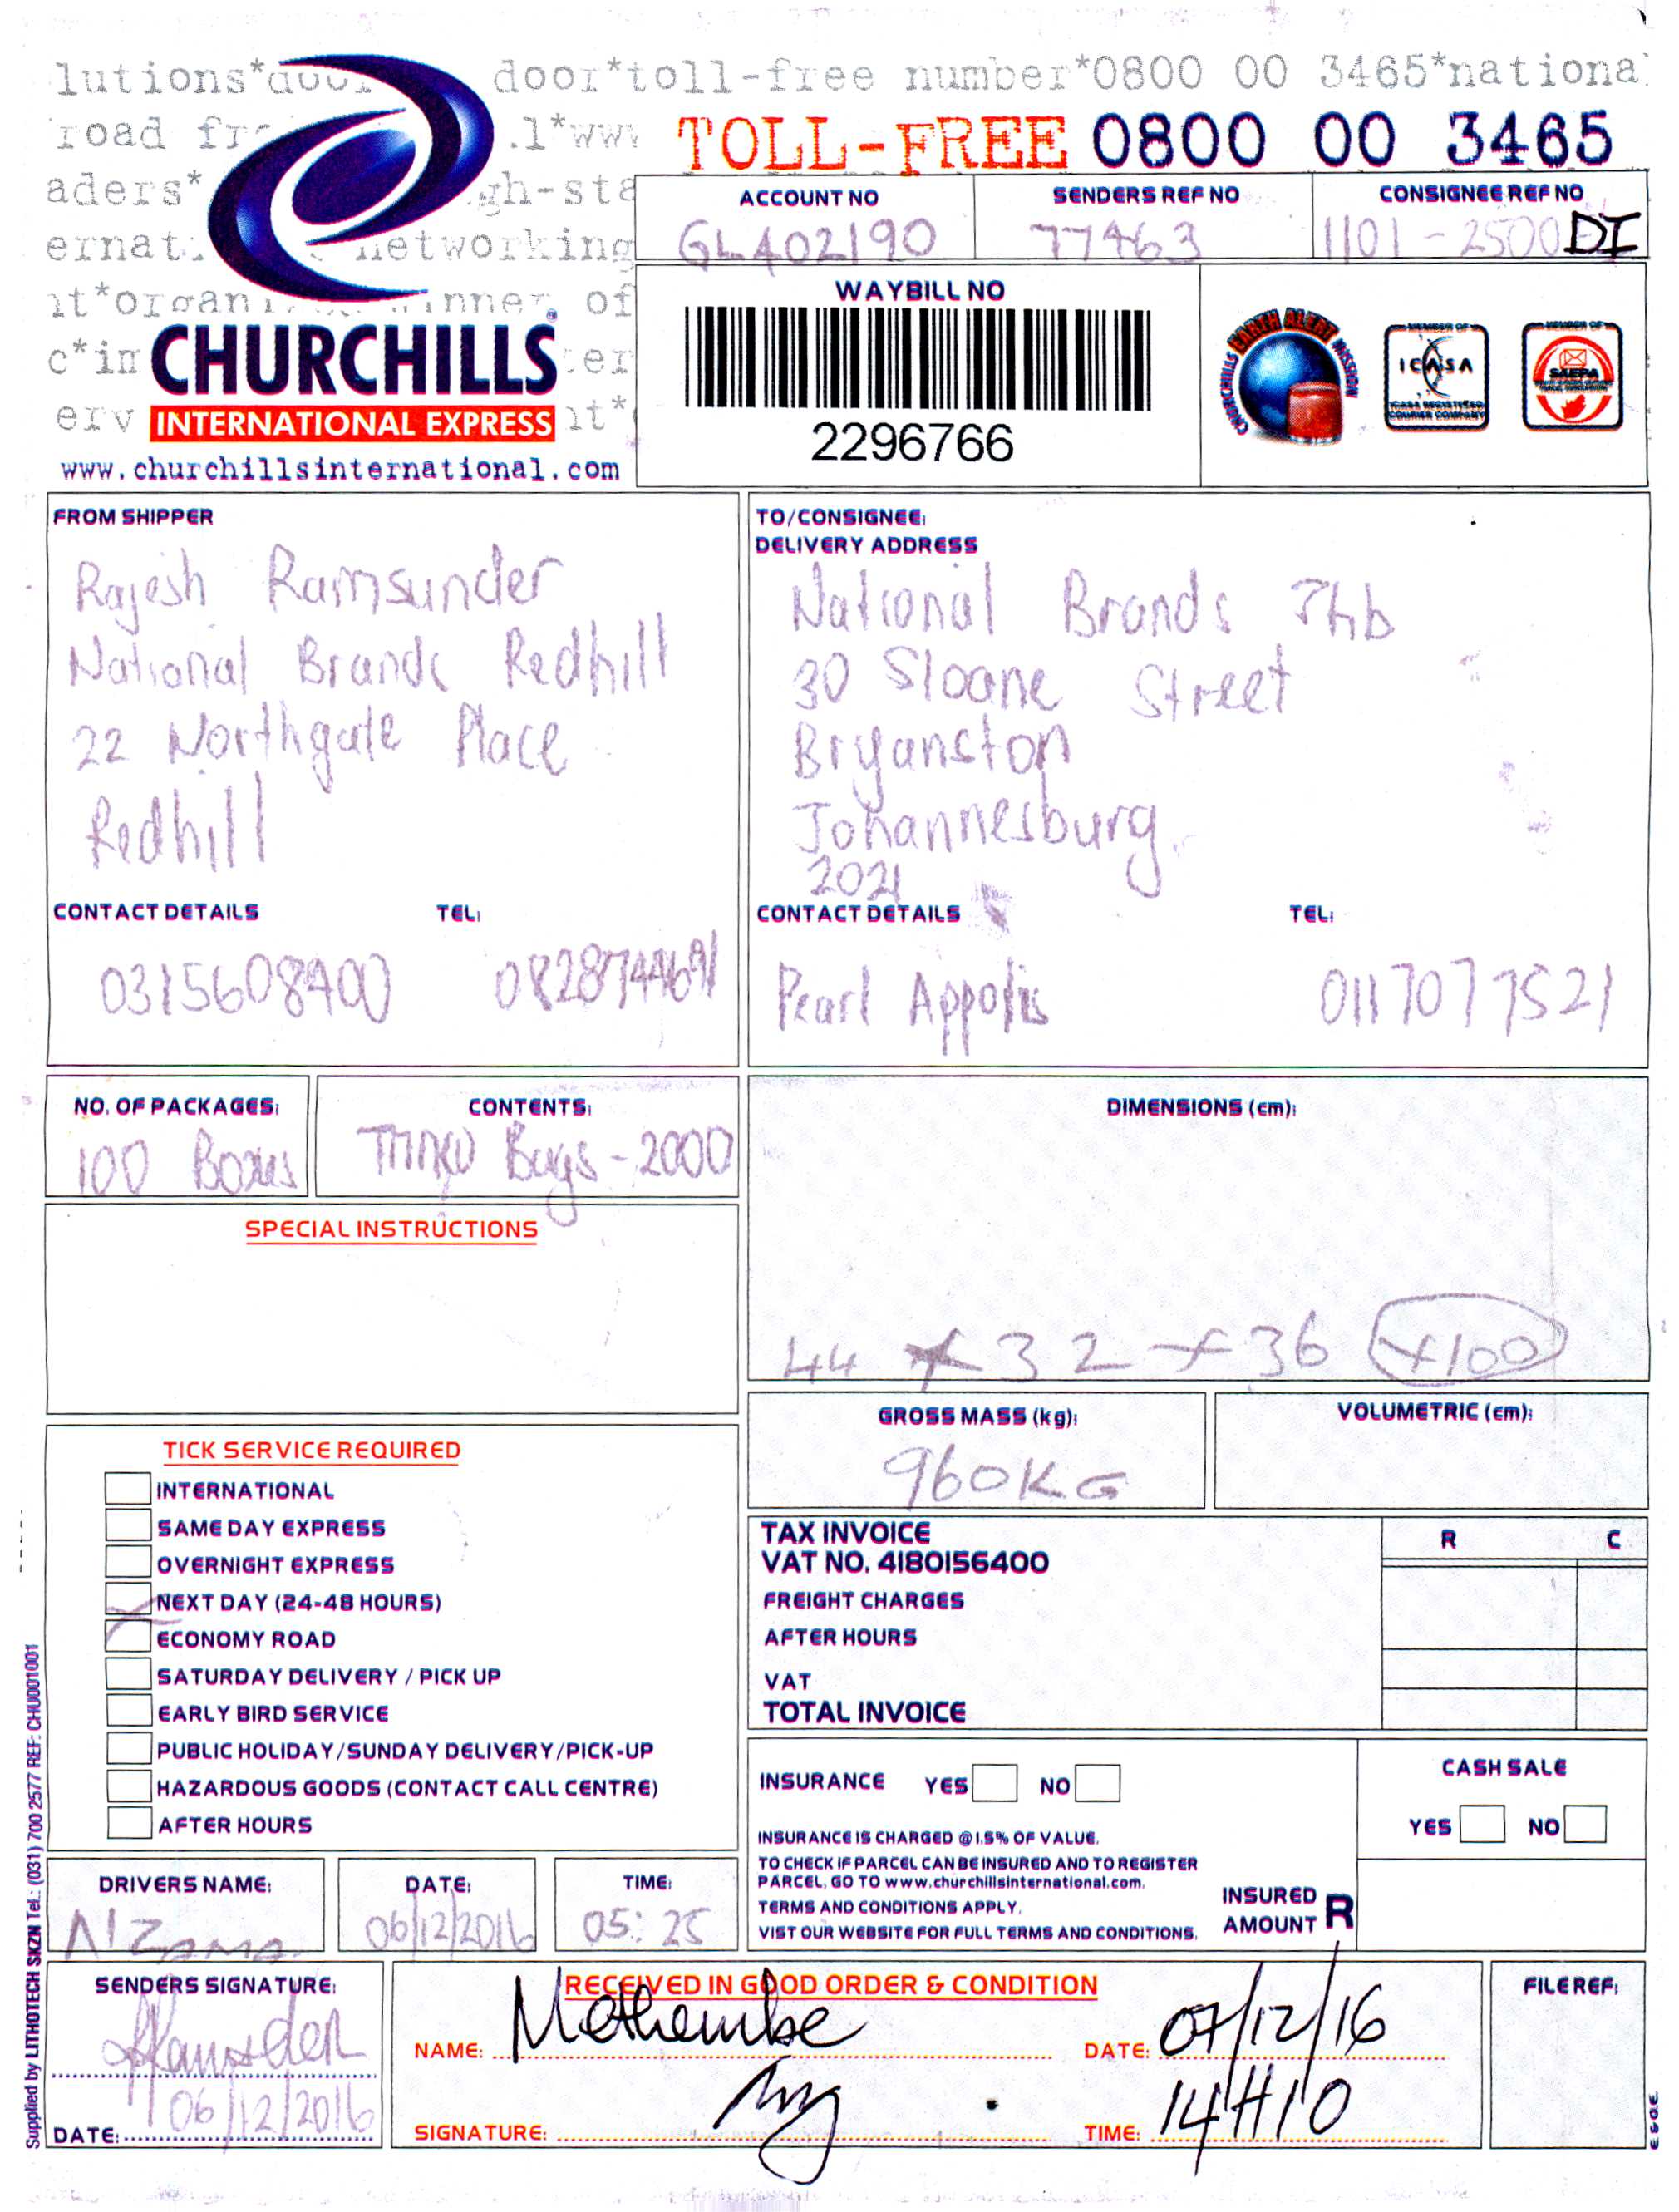 lutions*door door*toll-free number*0800 00 3465*national
road fr .l*www
TOLL-FREE 0800 00 3465
aders* gh-sta
ernat networking
nt*organi inner of
c*in ter
erv nt*
CHURCHILLS
INTERNATIONAL EXPRESS
www.churchillsinternational.com
ACCOUNT NO SENDERS REF NO CONSIGNEE REF NO
GL402190 77463 1101-2500 DI
WAYBILL NO
2296766
CHURCHILLS EARTH ALERT MISSION
MEMBER OF ICASA ICASA REGISTERED COURIER COMPANY
MEMBER OF SAEPA
FROM SHIPPER
Rajesh Ramsunder
National Brands Redhill
22 Northgate Place
Redhill
CONTACT DETAILS TEL:
0315608400
TO/CONSIGNEE:
DELIVERY ADDRESS
National Brands Jhb
30 Sloane Street
Bryanston
Johannesburg
2021
CONTACT DETAILS TEL:
Pearl Appolis 0117077521
NO. OF PACKAGES: CONTENTS:
100 Boxes Bags - 2000
DIMENSIONS (cm):
44 x 32 x 36 x100
SPECIAL INSTRUCTIONS
GROSS MASS (kg): VOLUMETRIC (cm):
960KG
TICK SERVICE REQUIRED
INTERNATIONAL
SAME DAY EXPRESS
OVERNIGHT EXPRESS
NEXT DAY (24-48 HOURS)
ECONOMY ROAD
SATURDAY DELIVERY / PICK UP
EARLY BIRD SERVICE
PUBLIC HOLIDAY/SUNDAY DELIVERY/PICK-UP
HAZARDOUS GOODS (CONTACT CALL CENTRE)
AFTER HOURS
TAX INVOICE R C
VAT NO. 4180156400
FREIGHT CHARGES
AFTER HOURS
VAT
TOTAL INVOICE
INSURANCE YES NO
INSURANCE IS CHARGED @ 1.5% OF VALUE.
TO CHECK IF PARCEL CAN BE INSURED AND TO REGISTER
PARCEL, GO TO www.churchillsinternational.com.
TERMS AND CONDITIONS APPLY.
VIST OUR WEBSITE FOR FULL TERMS AND CONDITIONS.
INSURED
AMOUNT R
CASH SALE
YES NO
DRIVERS NAME: DATE: TIME:
NZAMA 06/12/2016 05:25
SENDERS SIGNATURE:
DATE: 06/12/2016
RECEIVED IN GOOD ORDER & CONDITION
NAME: Mathembe DATE: 07/12/16
SIGNATURE: TIME: 14H10
FILE REF:
E & O.E
Supplied by LITHOTECH SKZN Tel.: (031) 700 2577 REF: CHU001001